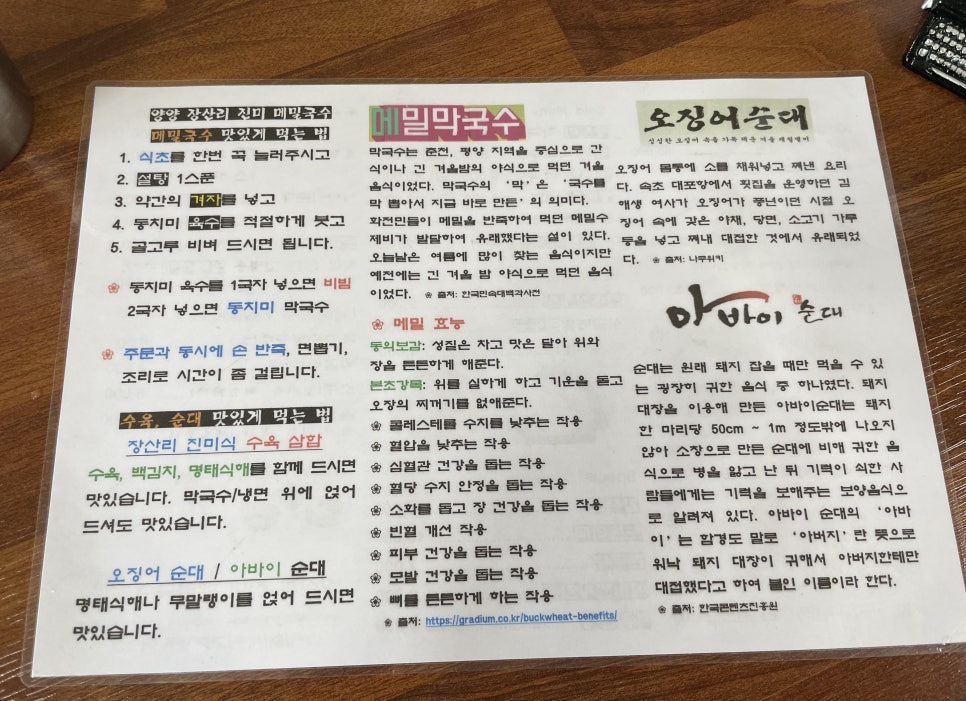 양양 장산리 진미 메밀국수
메밀국수 맛있게 먹는 법
1. 식초를 한번 꾹 눌러주시고
2. 설탕 1스푼
3. 약간의 겨자를 넣고
4. 동치미 육수를 적절하게 붓고
5. 골고루 비벼 드시면 됩니다.
❀ 동치미 육수를 1국자 넣으면 비빔
2국자 넣으면 동치미 막국수
❀ 주문과 동시에 손 반죽, 면뽑기,
조리로 시간이 좀 걸립니다.
수육, 순대 맛있게 먹는 법
장산리 진미식 수육 삼합
수육, 백김치, 명태식해를 함께 드시면
맛있습니다. 막국수/냉면 위에 얹어
드셔도 맛있습니다.
오징어 순대 / 아바이 순대
명태식해나 무말랭이를 얹어 드시면
맛있습니다.
메밀막국수
막국수는 춘천, 평양 지역을 중심으로 간
식이나 긴 겨울밤의 야식으로 먹던 겨울
음식이었다. 막국수의 '막'은 '국수를
막 뽑아서 지금 바로 만든'의 의미다.
화전민들이 메밀을 반죽하여 먹던 메밀수
제비가 발달하여 유래했다는 설이 있다.
오늘날은 여름에 많이 찾는 음식이지만
예전에는 긴 겨울 밤 야식으로 먹던 음식
이었다. ❀ 출처: 한국민속대백과사전
❀ 메밀 효능
동의보감: 성질은 차고 맛은 달아 위와
장을 튼튼하게 해준다.
본초강목: 위를 실하게 하고 기운을 돋고
오장의 찌꺼기를 없애준다.
❀ 콜레스테롤 수치를 낮추는 작용
❀ 혈압을 낮추는 작용
❀ 심혈관 건강을 돕는 작용
❀ 혈당 수치 안정을 돕는 작용
❀ 소화를 돕고 장 건강을 돕는 작용
❀ 빈혈 개선 작용
❀ 피부 건강을 돕는 작용
❀ 모발 건강을 돕는 작용
❀ 뼈를 튼튼하게 하는 작용
❀ 출처: https://gradium.co.kr/buckwheat-benefits/
오징어순대
싱싱한 오징어 속을 가득 채운
오징어 몸통에 소를 채워넣고 쪄낸 요리
다. 속초 대포항에서 횟집을 운영하던 김
해생 여사가 오징어가 풍년이던 시절 오
징어 속에 갖은 야채, 당면, 소고기 가루
등을 넣고 쪄내 대접한 것에서 유래되었
다. ❀ 출처: 나무위키
아바이 순대
순대는 원래 돼지 잡을 때만 먹을 수 있
는 굉장히 귀한 음식 중 하나였다. 돼지
대창을 이용해 만든 아바이순대는 돼지
한 마리당 50cm ~ 1m 정도밖에 나오지
않아 소창으로 만든 순대에 비해 귀한 음
식으로 병을 앓고 난 뒤 기력이 쇠한 사
람들에게는 기력을 보해주는 보양음식으
로 알려져 있다. 아바이 순대의 '아바
이'는 함경도 말로 '아버지'란 뜻으로
워낙 돼지 대창이 귀해서 아버지한테만
대접했다고 하여 붙인 이름이라 한다.
❀ 출처: 한국콘텐츠진흥원